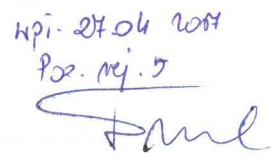 wpł. 27.04 2017
Poz. rej. 5